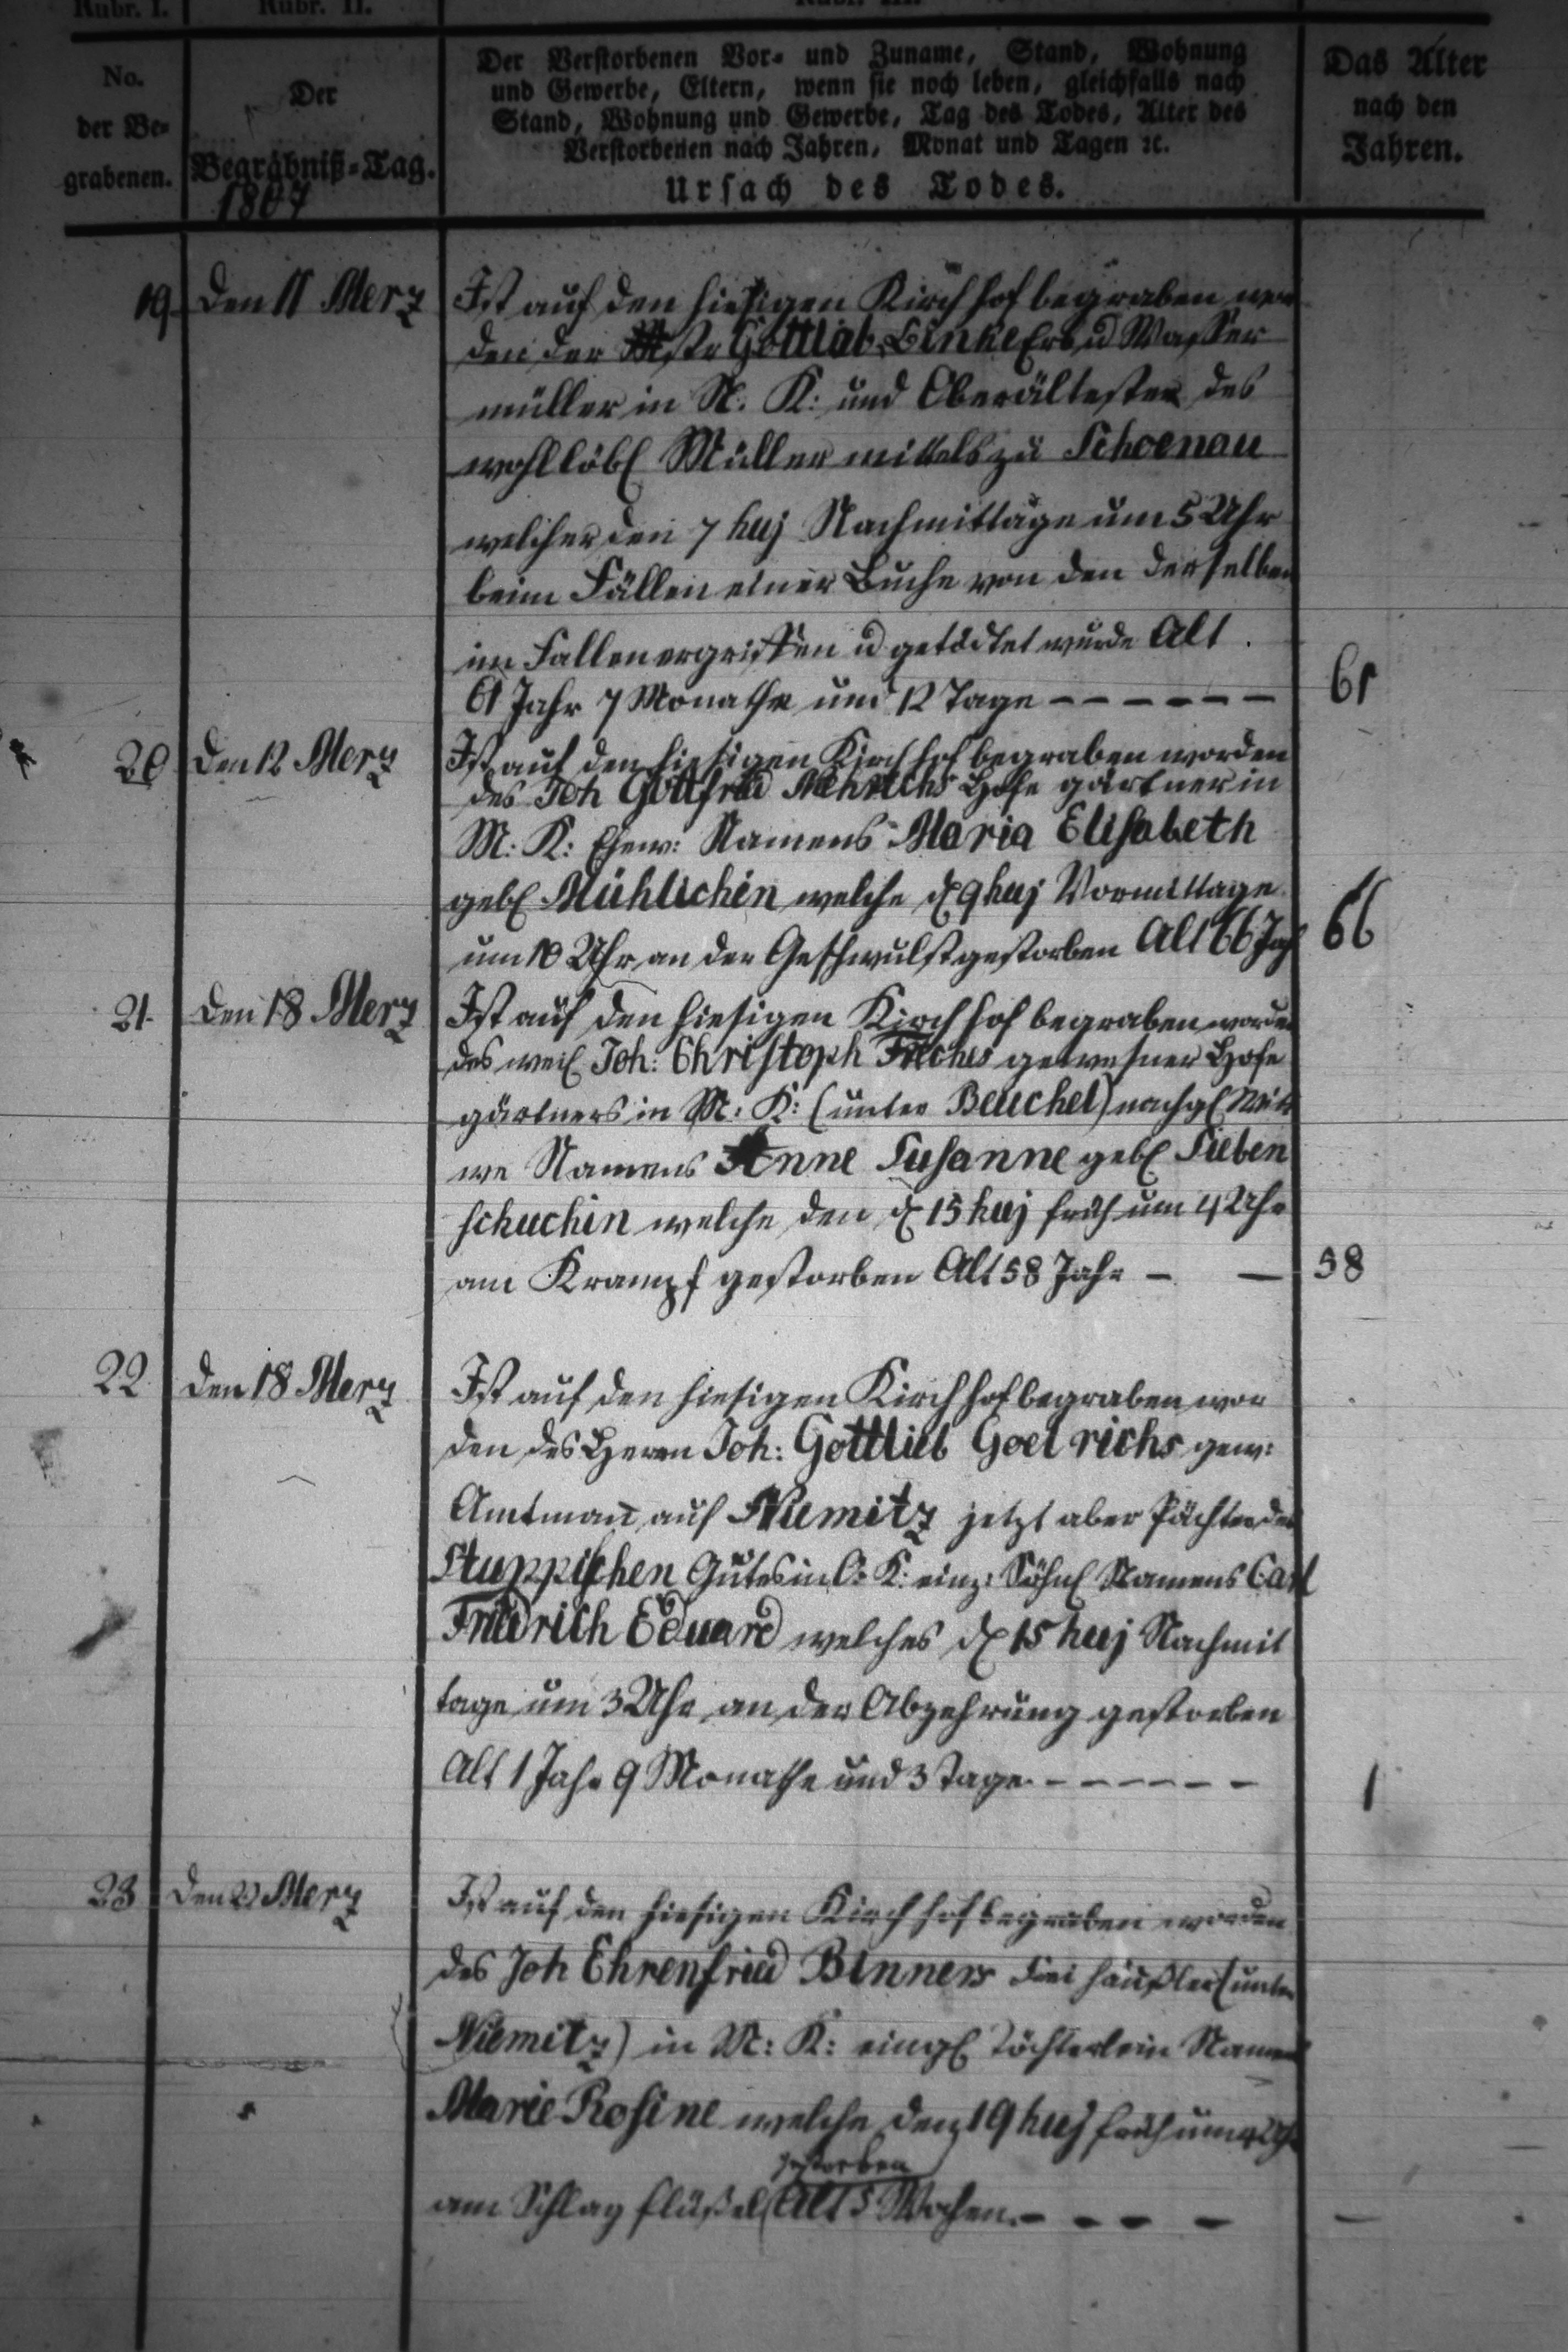 Rubr. I. Rubr. II. Rubr. III.
No.
der Be-
grabenen.
Der
Begräbniß-Tag.
1807
Der Verstorbenen Vor- und Zuname, Stand, Wohnung
und Gewerbe, Eltern, wenn sie noch leben, gleichfalls nach
Stand, Wohnung und Gewerbe, Tag des Todes, Alter des
Verstorbenen nach Jahren, Monat und Tagen ꝛc.
Ursach des Todes.
Das Alter
nach den
Jahren.
19. den 11 Merz Ist auf den hiesigen Kirchhof begraben wor
den der Mstr Gottlob Linke Erb u Wasser
müller in N. K: und Oberältester des
wohllöbl Müller mittels zu Schoenau
welcher den 7 huj Nachmittage um 5 Uhr
beim Fällen einer Buche von den derselben
im Fallen ergriffen u getödtet wurde Alt.
61 Jahr 7 Monathe und 12 Tage - - - - - - 61
20 den 12 Merz Ist auf den hiesigen Kirchhof begraben worden
des Joh Gottfried Hofe gärtner in
M: K: Ehew: Namens Maria Elisabeth
gebl Mühlichin welche d 9 huj Vormittage
um 10 Uhr an der Geschwulst gestorben Alt 66 Jah 66
21. den 18 Merz Ist auf den hiesigen Kirchhof begraben worden
des weil Joh: Christoph gewesner Hofe
gärtners in M: K: (unter Beuchel) nachgl Wit
we Namens Anne Susanne gebl Sieben
schuchin welche den d 15 huj früh um 4 Uhr
am Krampf gestorben Alt 58 Jahr - - 58
22 den 18 Merz Ist auf den hiesigen Kirchhof begraben wor
den des Herrn Joh: Gottlieb Goelrichs gew:
Amtman auf Niemitz jetzt aber Pächter des
Stuppischen Gutes in O: K: einz: Söhnl Namens Carl
Friedrich Eduard welches d 15 huj Nachmit
tage um 3 Uhr an der Abzehrung gestorben
Alt 1 Jahr 9 Monathe und 3 Tage. - - - - - - 1
23 den 21 Merz Ist auf den hiesigen Kirchhof begraben worden
des Joh Ehrenfried Binners Frei häußler (unter
Niemitz) in M: K: eingl Töchterlein Namens
Marie Rosine welche den 19 huj früh um 4 Uhr
gestorben
am Schlag flüßel Alt 5 Wochen. - - - - -